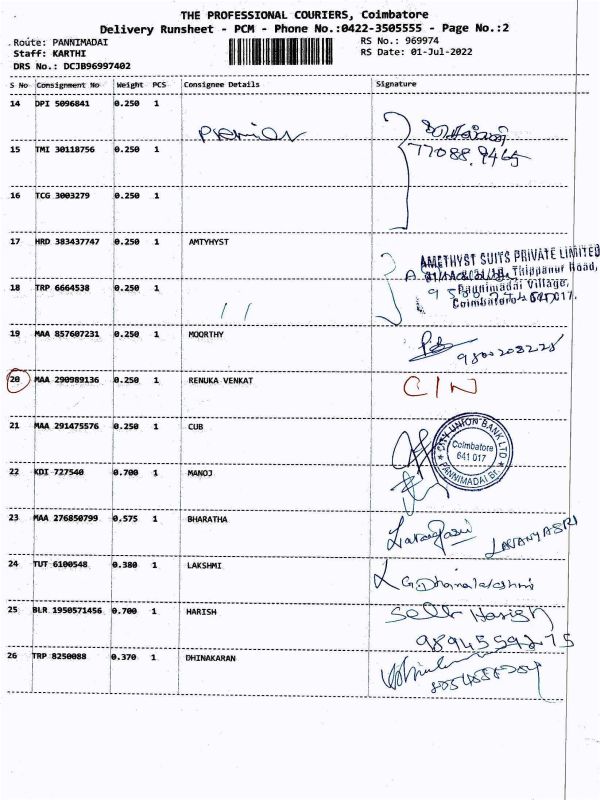 THE PROFESSIONAL COURIERS, Coimbatore
Delivery Runsheet - PCM - Phone No.:0422-3505555 - Page No.:2
Route: PANNIMADAI
RS No.: 969974
Staff: KARTHI
RS Date: 01-Jul-2022
DRS No.: DCJB96997402
S No Consignment No Weight PCS Consignee Details Signature
14 DPI 5096841 0.250 1
Premier
15 TMI 30118756 0.250 1
77088.9465
16 TCG 3003279 0.250 1
17 HRD 383437747 0.250 1 AMTYHYST
AMETHYST SUITS PRIVATE LIMITED
Thippanur Road,
Pannimadai Village,
Coimbatore - 641 017.
18 TRP 6664538 0.250 1
19 MAA 857607231 0.250 1 MOORTHY
20 MAA 290989136 0.250 1 RENUKA VENKAT CIN
21 MAA 291475576 0.250 1 CUB
CITY UNION BANK LTD
Coimbatore
641 017
PANNIMADAI Br.
22 KDI 727540 0.700 1 MANOJ
23 MAA 276850799 0.575 1 BHARATHA
LAVANYASRI
24 TUT 6100548 0.380 1 LAKSHMI
G.Dhanalakshmi
25 BLR 1950571456 0.700 1 HARISH
Self Harish
9894559275
26 TRP 8250088 0.370 1 DHINAKARAN